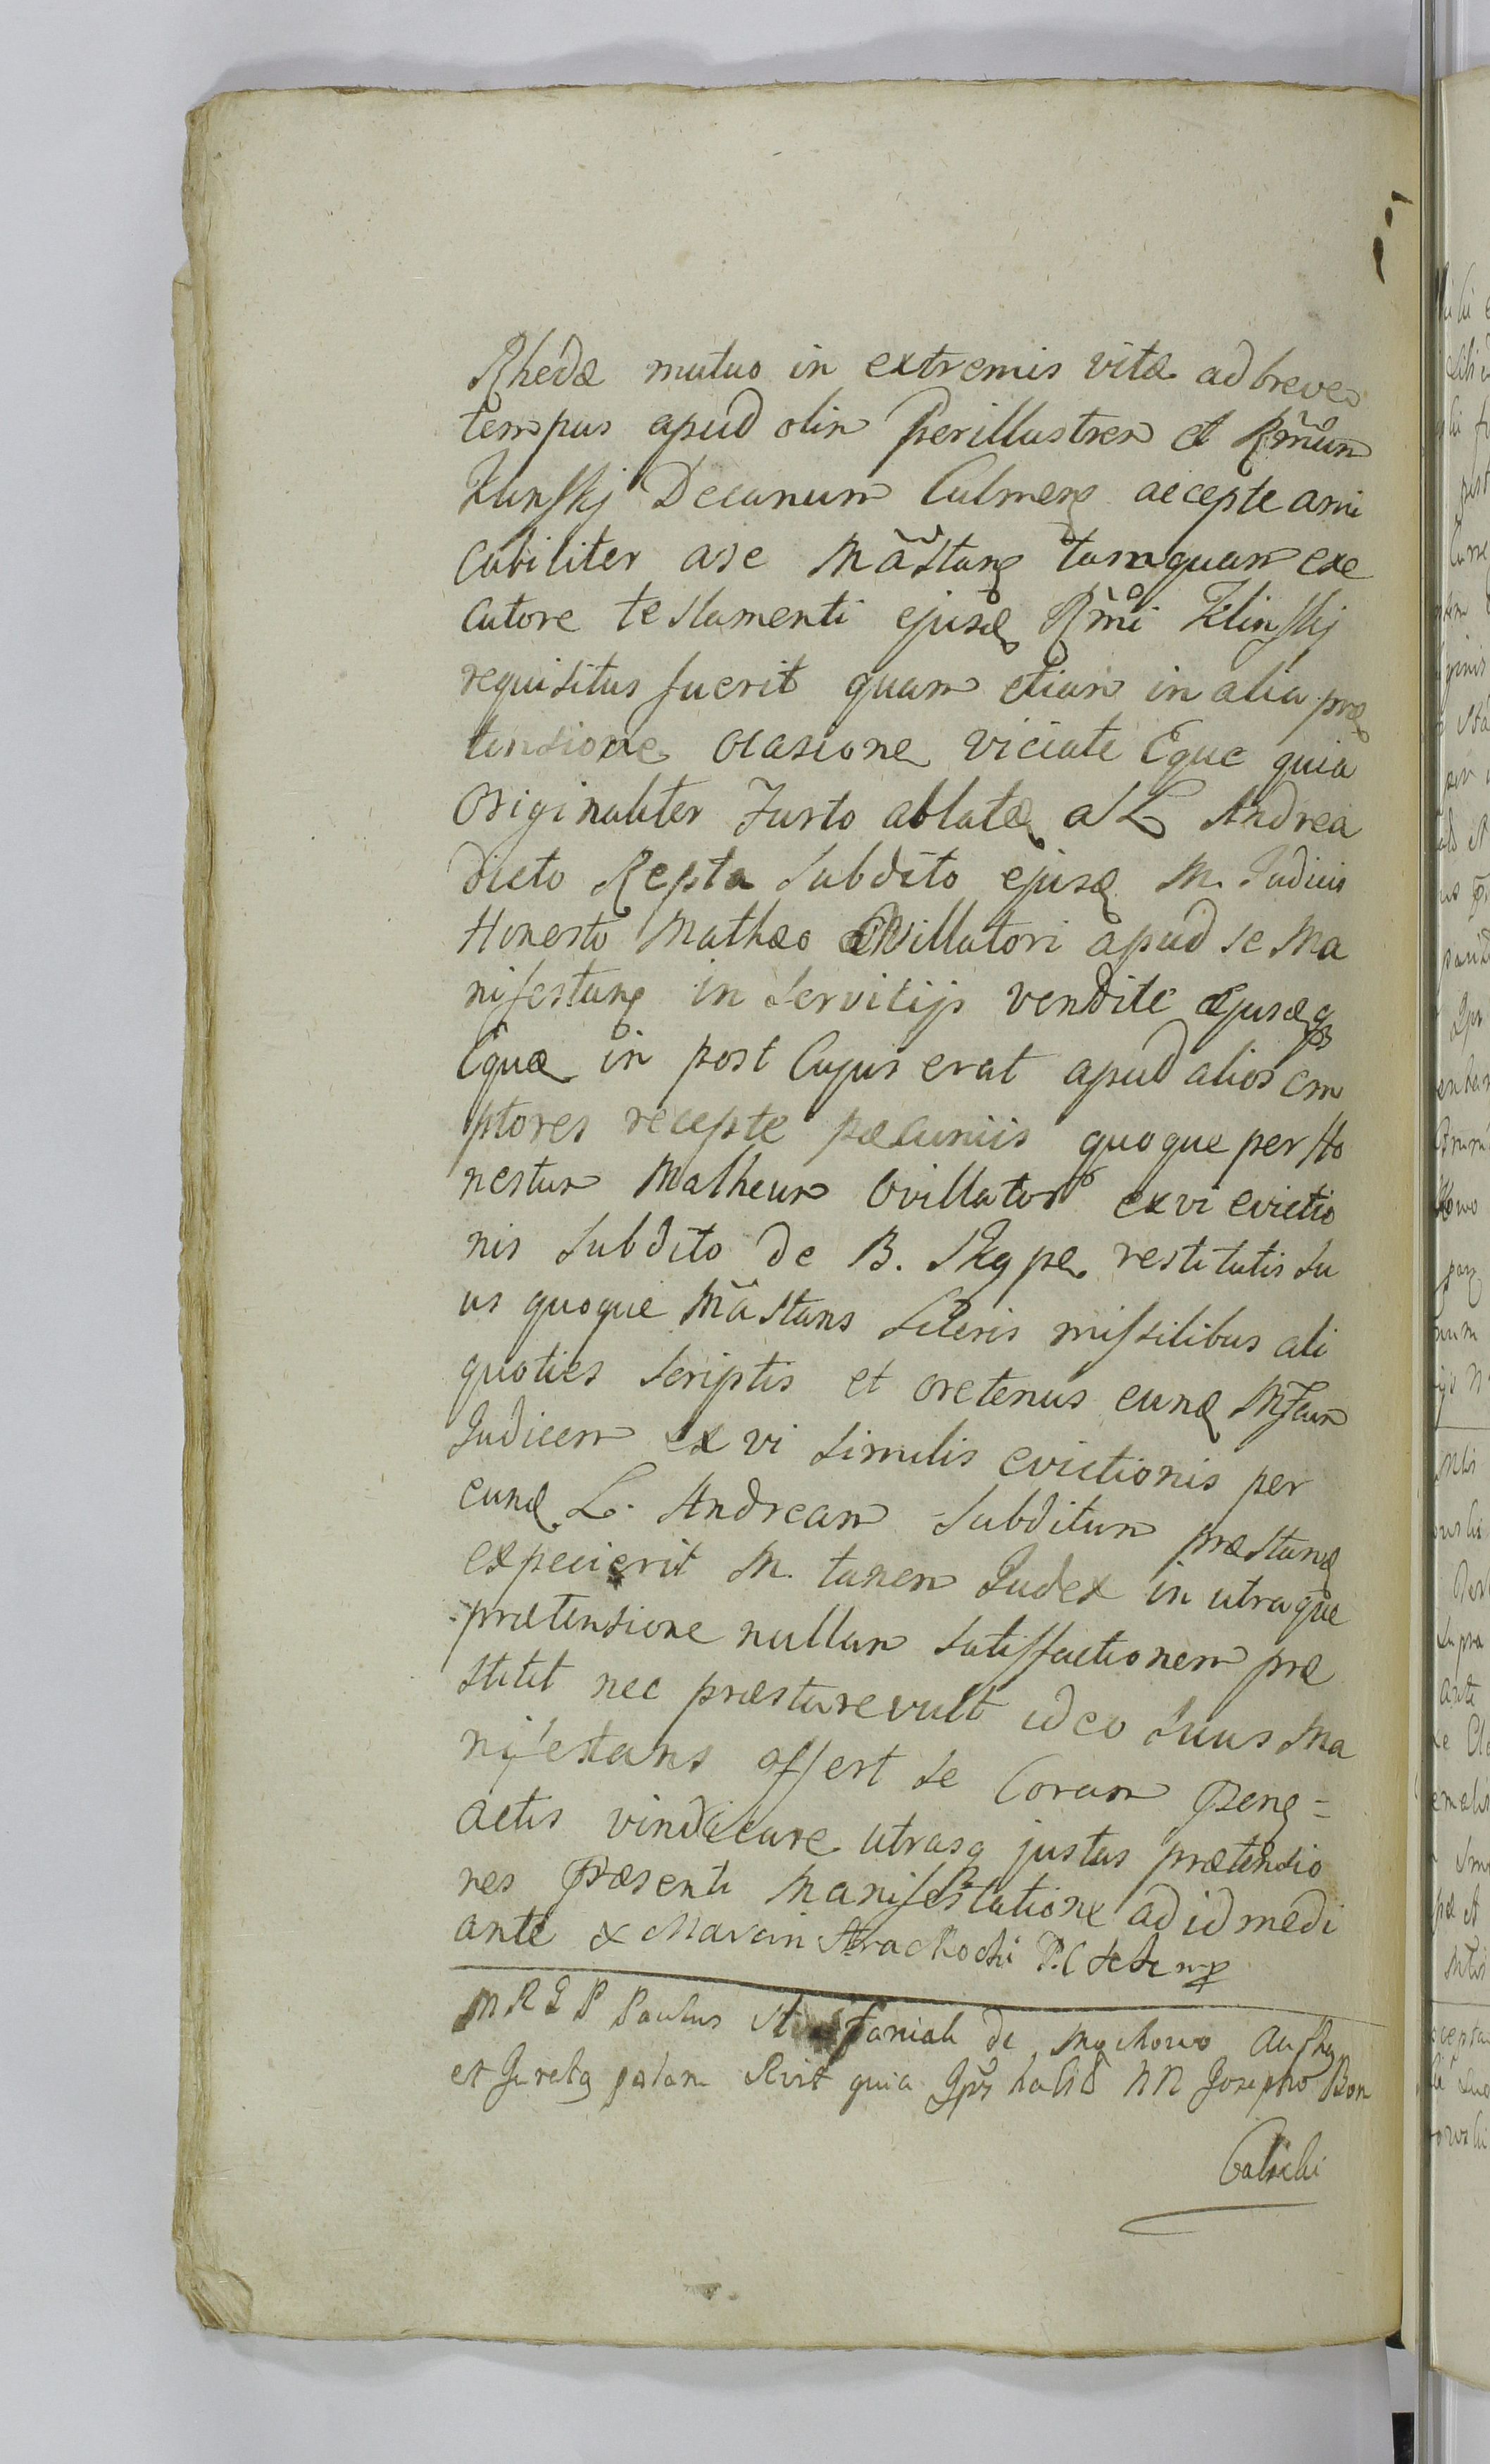 Rhedæ mutuo in extremis vitæ ad breve
tempus apud olim Perillustrem et Rm̃um
Klinskj Decanum Culmens accepte ami
cabiliter a se Mãstans tamquam exe
cutore testamenti ejusd Rm̃i Klinskj
requisitus fuerit quam etiam in alia præ
tensione ocasione viciate Eque quia
Originaliter Furto ablatæ a L Andrea
dicto Repta Subdito ejusd M. Judicis
Honesto Mathæo Owillatori apud se Ma
nifestans in Servitijs vendite Ejusdq
Equæ in post Cujus erat apud alios em
ptores recepte pæcuniis quoque per Ho
nestum Matheum Ovillator ex vi evictio
nis Subdito de B. restitutis Su
us quoque Mãstans Literis missilibus ali
quoties Scriptis et oretenus eund
Judicem ex vi similis evictionis per
eund L. Andream Subditum præstand
expecierit M. tamen Judex in utraque
prætensione nullam Satisfactionem præ
stitit nec præstare vult ideo Suus Ma
nifestans offert se Coram
actis vindicare utrasq justas prætensio
nes Præsenti Manifestatione ad id medi
ante x Marcin
M R G P Paulus de Mochowo
et palam quia habid NN Josepho Bon